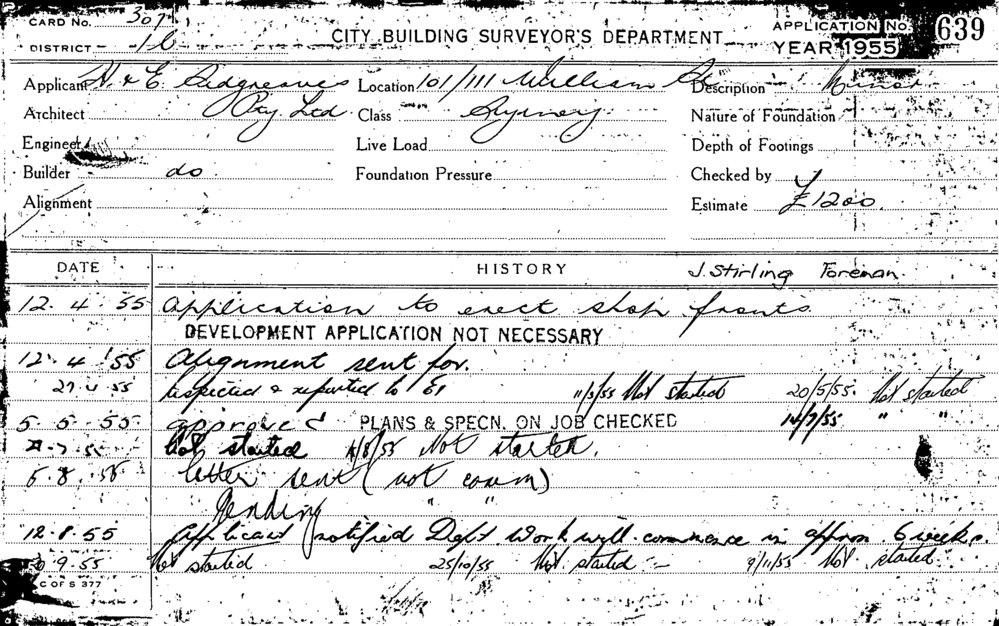 CARD No. 307
DISTRICT
CITY BUILDING SURVEYOR'S DEPARTMENT
APPLICATION No. 639
YEAR 1955
Applicant H. & E. Sidgreaves Location 101/111 William St Description Minor
Architect Pty Ltd. Class Nature of Foundation
Engineer Live Load Depth of Footings
Builder do Foundation Pressure Checked by
Alignment Estimate £1200
DATE HISTORY J. Stirling Foreman.
12. 4. 55 Application to erect shop fronts.
DEVELOPMENT APPLICATION NOT NECESSARY
12. 4 '55 Alignment sent for.
27 4 55 Inspected & reported to 11/5/55 Not started 20/5/55. Not started
5. 5. 55. approved PLANS & SPECN. ON JOB CHECKED 14/7/55 " "
7. 55 Not started 4/8/55 Not started.
5. 8. 55 letter sent (not comm)
Pending " "
12.8.55 Applicant notified Dept work will commence in approx. 6 weeks.
9.55 Not started 25/10/55 Not started - 9/11/55 Not started.
C OF S 377